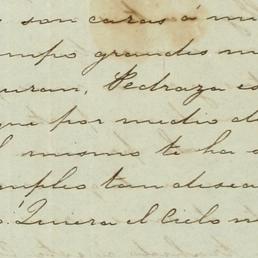 son caras á mi
mpo grandes m
uran, Pedraza es
que por medio d
l mismo te ha
mpleo tan desea
o! Quiera el Cielo n